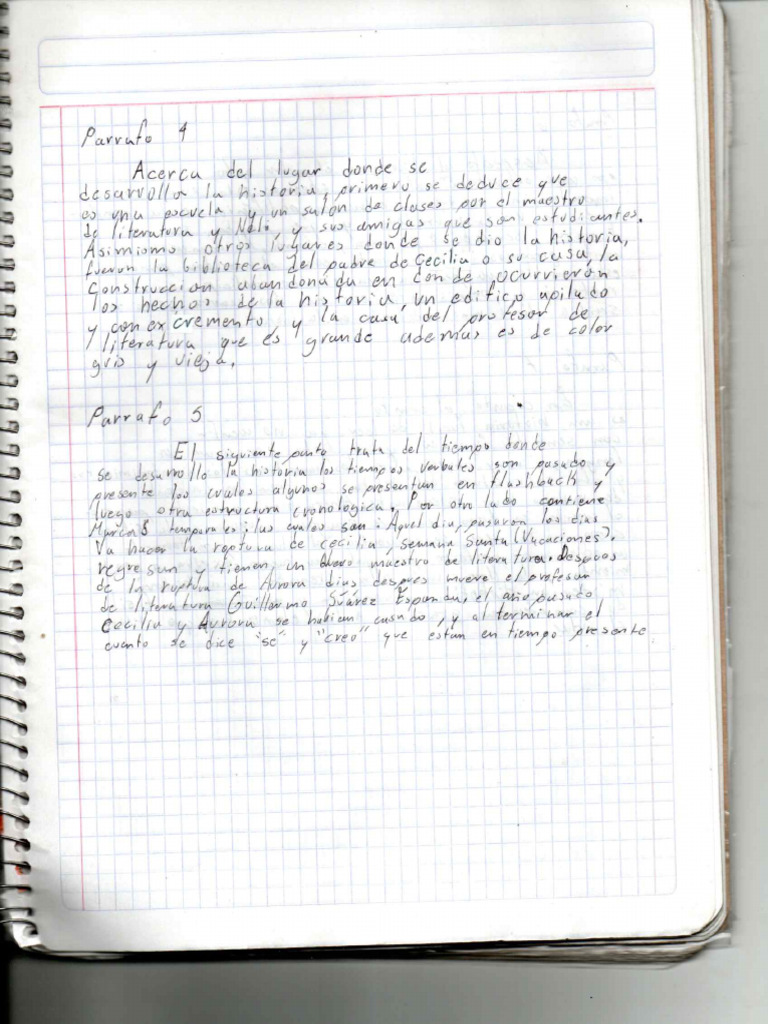 Parrafo 4
Acerca del lugar donde se
desarrolla la historia, primero se deduce que
es una escuela y un salón de clases por el maestro
de literatura y Nalo, y sus amigas que son estudiantes.
Asimismo otros lugares donde se dio la historia,
fueron la biblioteca del padre de Cecilia o su casa, la
construccion abandonada en donde ocurrieron
los hechos de la historia, un edificio apilado
y con excremento, y la casa del profesor de
literatura que es grande ademas es de color
gris y vieja.
Parrafo 5
El siguiente punto trata del tiempo donde
se desarrollo la historia los tiempos verbales son pasado y
presente los cuales algunos se presentan en flashback y
luego otra estructura cronologica. Por otro lado contiene
Marcas temporales: las cuales son: Aquel dia, pasaron los dias
Va hacer la ruptura de cecilia, semana santa (Vacaciones).
regresan y tienen un nuevo maestro de literatura. Despues
de la ruptura de Aurora dias despues muere el profesor
de literatura Guillermo Súarez, el año pasado
Cecilia y Aurora se habian casado, y al terminar el
cuento se dice "se" y "creo" que estan en tiempo presente